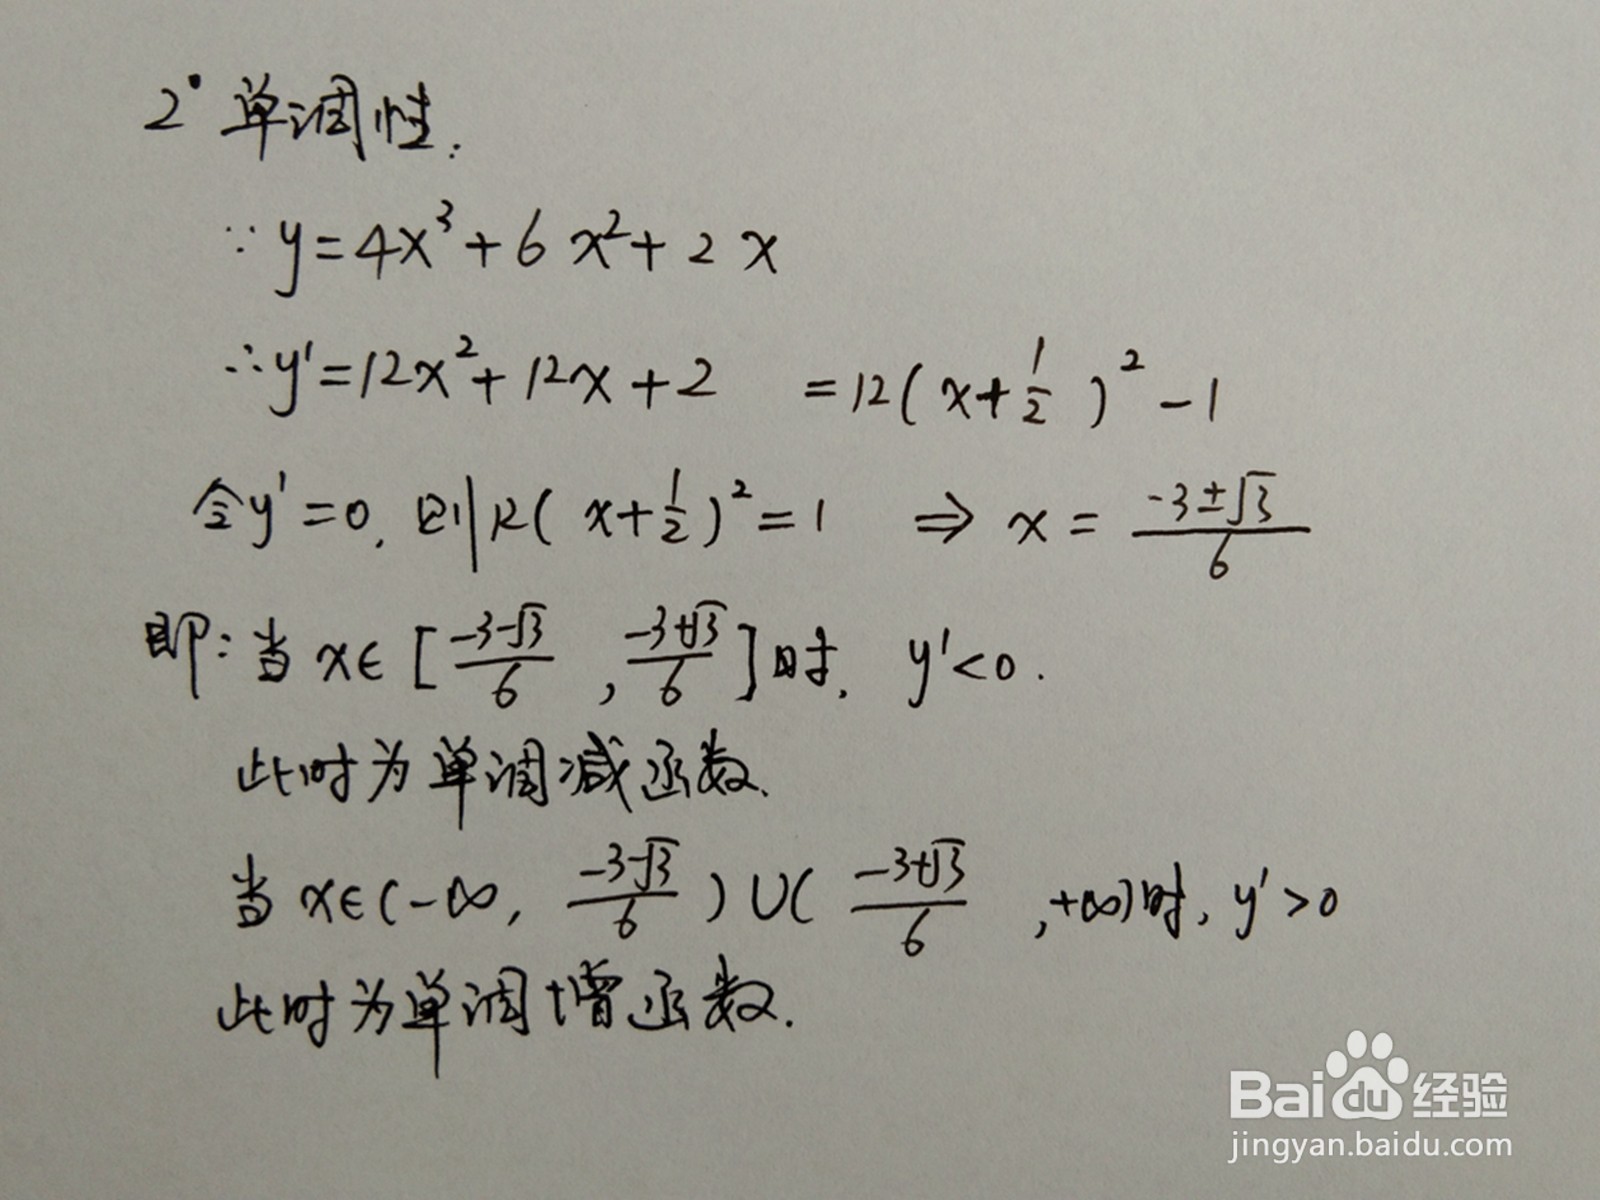 2° 单调性:
∵ y=4x³+6x²+2x
∴ y'=12x²+12x+2 =12(x+1/2)²-1
令y'=0, 则12(x+1/2)²=1 ⇒ x=(-3±√3)/6
即: 当x∈[(-3-√3)/6, (-3+√3)/6]时, y'<0.
此时为单调减函数.
当x∈(-∞, (-3-√3)/6)∪((-3+√3)/6, +∞)时, y'>0
此时为单调增函数.
Bai du 经验
jingyan.baidu.com